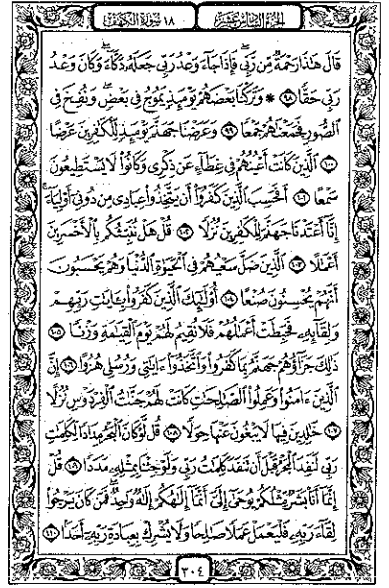 الجزء السادس عشر ١٨ سورة الكهف
قَالَ هَٰذَا رَحْمَةٌ مِّن رَّبِّي فَإِذَا جَآءَ وَعْدُ رَبِّي جَعَلَهُۥ دَكَّآءَ وَكَانَ وَعْدُ
رَبِّي حَقًّا ٩٨ * وَتَرَكْنَا بَعْضَهُمْ يَوْمَئِذٍ يَمُوجُ فِي بَعْضٍ وَنُفِخَ فِي
ٱلصُّورِ فَجَمَعْنَٰهُمْ جَمْعًا ٩٩ وَعَرَضْنَا جَهَنَّمَ يَوْمَئِذٍ لِّلْكَٰفِرِينَ عَرْضًا
١٠٠ ٱلَّذِينَ كَانَتْ أَعْيُنُهُمْ فِي غِطَآءٍ عَن ذِكْرِي وَكَانُوا۟ لَا يَسْتَطِيعُونَ
سَمْعًا ١٠١ أَفَحَسِبَ ٱلَّذِينَ كَفَرُوٓا۟ أَن يَتَّخِذُوا۟ عِبَادِي مِن دُونِيٓ أَوْلِيَآءَ
إِنَّآ أَعْتَدْنَا جَهَنَّمَ لِلْكَٰفِرِينَ نُزُلًا ١٠٢ قُلْ هَلْ نُنَبِّئُكُم بِٱلْأَخْسَرِينَ
أَعْمَٰلًا ١٠٣ ٱلَّذِينَ ضَلَّ سَعْيُهُمْ فِي ٱلْحَيَوٰةِ ٱلدُّنْيَا وَهُمْ يَحْسَبُونَ
أَنَّهُمْ يُحْسِنُونَ صُنْعًا ١٠٤ أُو۟لَٰٓئِكَ ٱلَّذِينَ كَفَرُوا۟ بِـَٔايَٰتِ رَبِّهِمْ
وَلِقَآئِهِۦ فَحَبِطَتْ أَعْمَٰلُهُمْ فَلَا نُقِيمُ لَهُمْ يَوْمَ ٱلْقِيَٰمَةِ وَزْنًا ١٠٥
ذَٰلِكَ جَزَآؤُهُمْ جَهَنَّمُ بِمَا كَفَرُوا۟ وَٱتَّخَذُوٓا۟ ءَايَٰتِي وَرُسُلِي هُزُوًا ١٠٦ إِنَّ
ٱلَّذِينَ ءَامَنُوا۟ وَعَمِلُوا۟ ٱلصَّٰلِحَٰتِ كَانَتْ لَهُمْ جَنَّٰتُ ٱلْفِرْدَوْسِ نُزُلًا
١٠٧ خَٰلِدِينَ فِيهَا لَا يَبْغُونَ عَنْهَا حِوَلًا ١٠٨ قُل لَّوْ كَانَ ٱلْبَحْرُ مِدَادًا لِّكَلِمَٰتِ
رَبِّي لَنَفِدَ ٱلْبَحْرُ قَبْلَ أَن تَنفَدَ كَلِمَٰتُ رَبِّي وَلَوْ جِئْنَا بِمِثْلِهِۦ مَدَدًا ١٠٩ قُلْ
إِنَّمَآ أَنَا۠ بَشَرٌ مِّثْلُكُمْ يُوحَىٰٓ إِلَيَّ أَنَّمَآ إِلَٰهُكُمْ إِلَٰهٌ وَٰحِدٌ فَمَن كَانَ يَرْجُوا۟
لِقَآءَ رَبِّهِۦ فَلْيَعْمَلْ عَمَلًا صَٰلِحًا وَلَا يُشْرِكْ بِعِبَادَةِ رَبِّهِۦٓ أَحَدًۢا ١١٠
٣٠٤